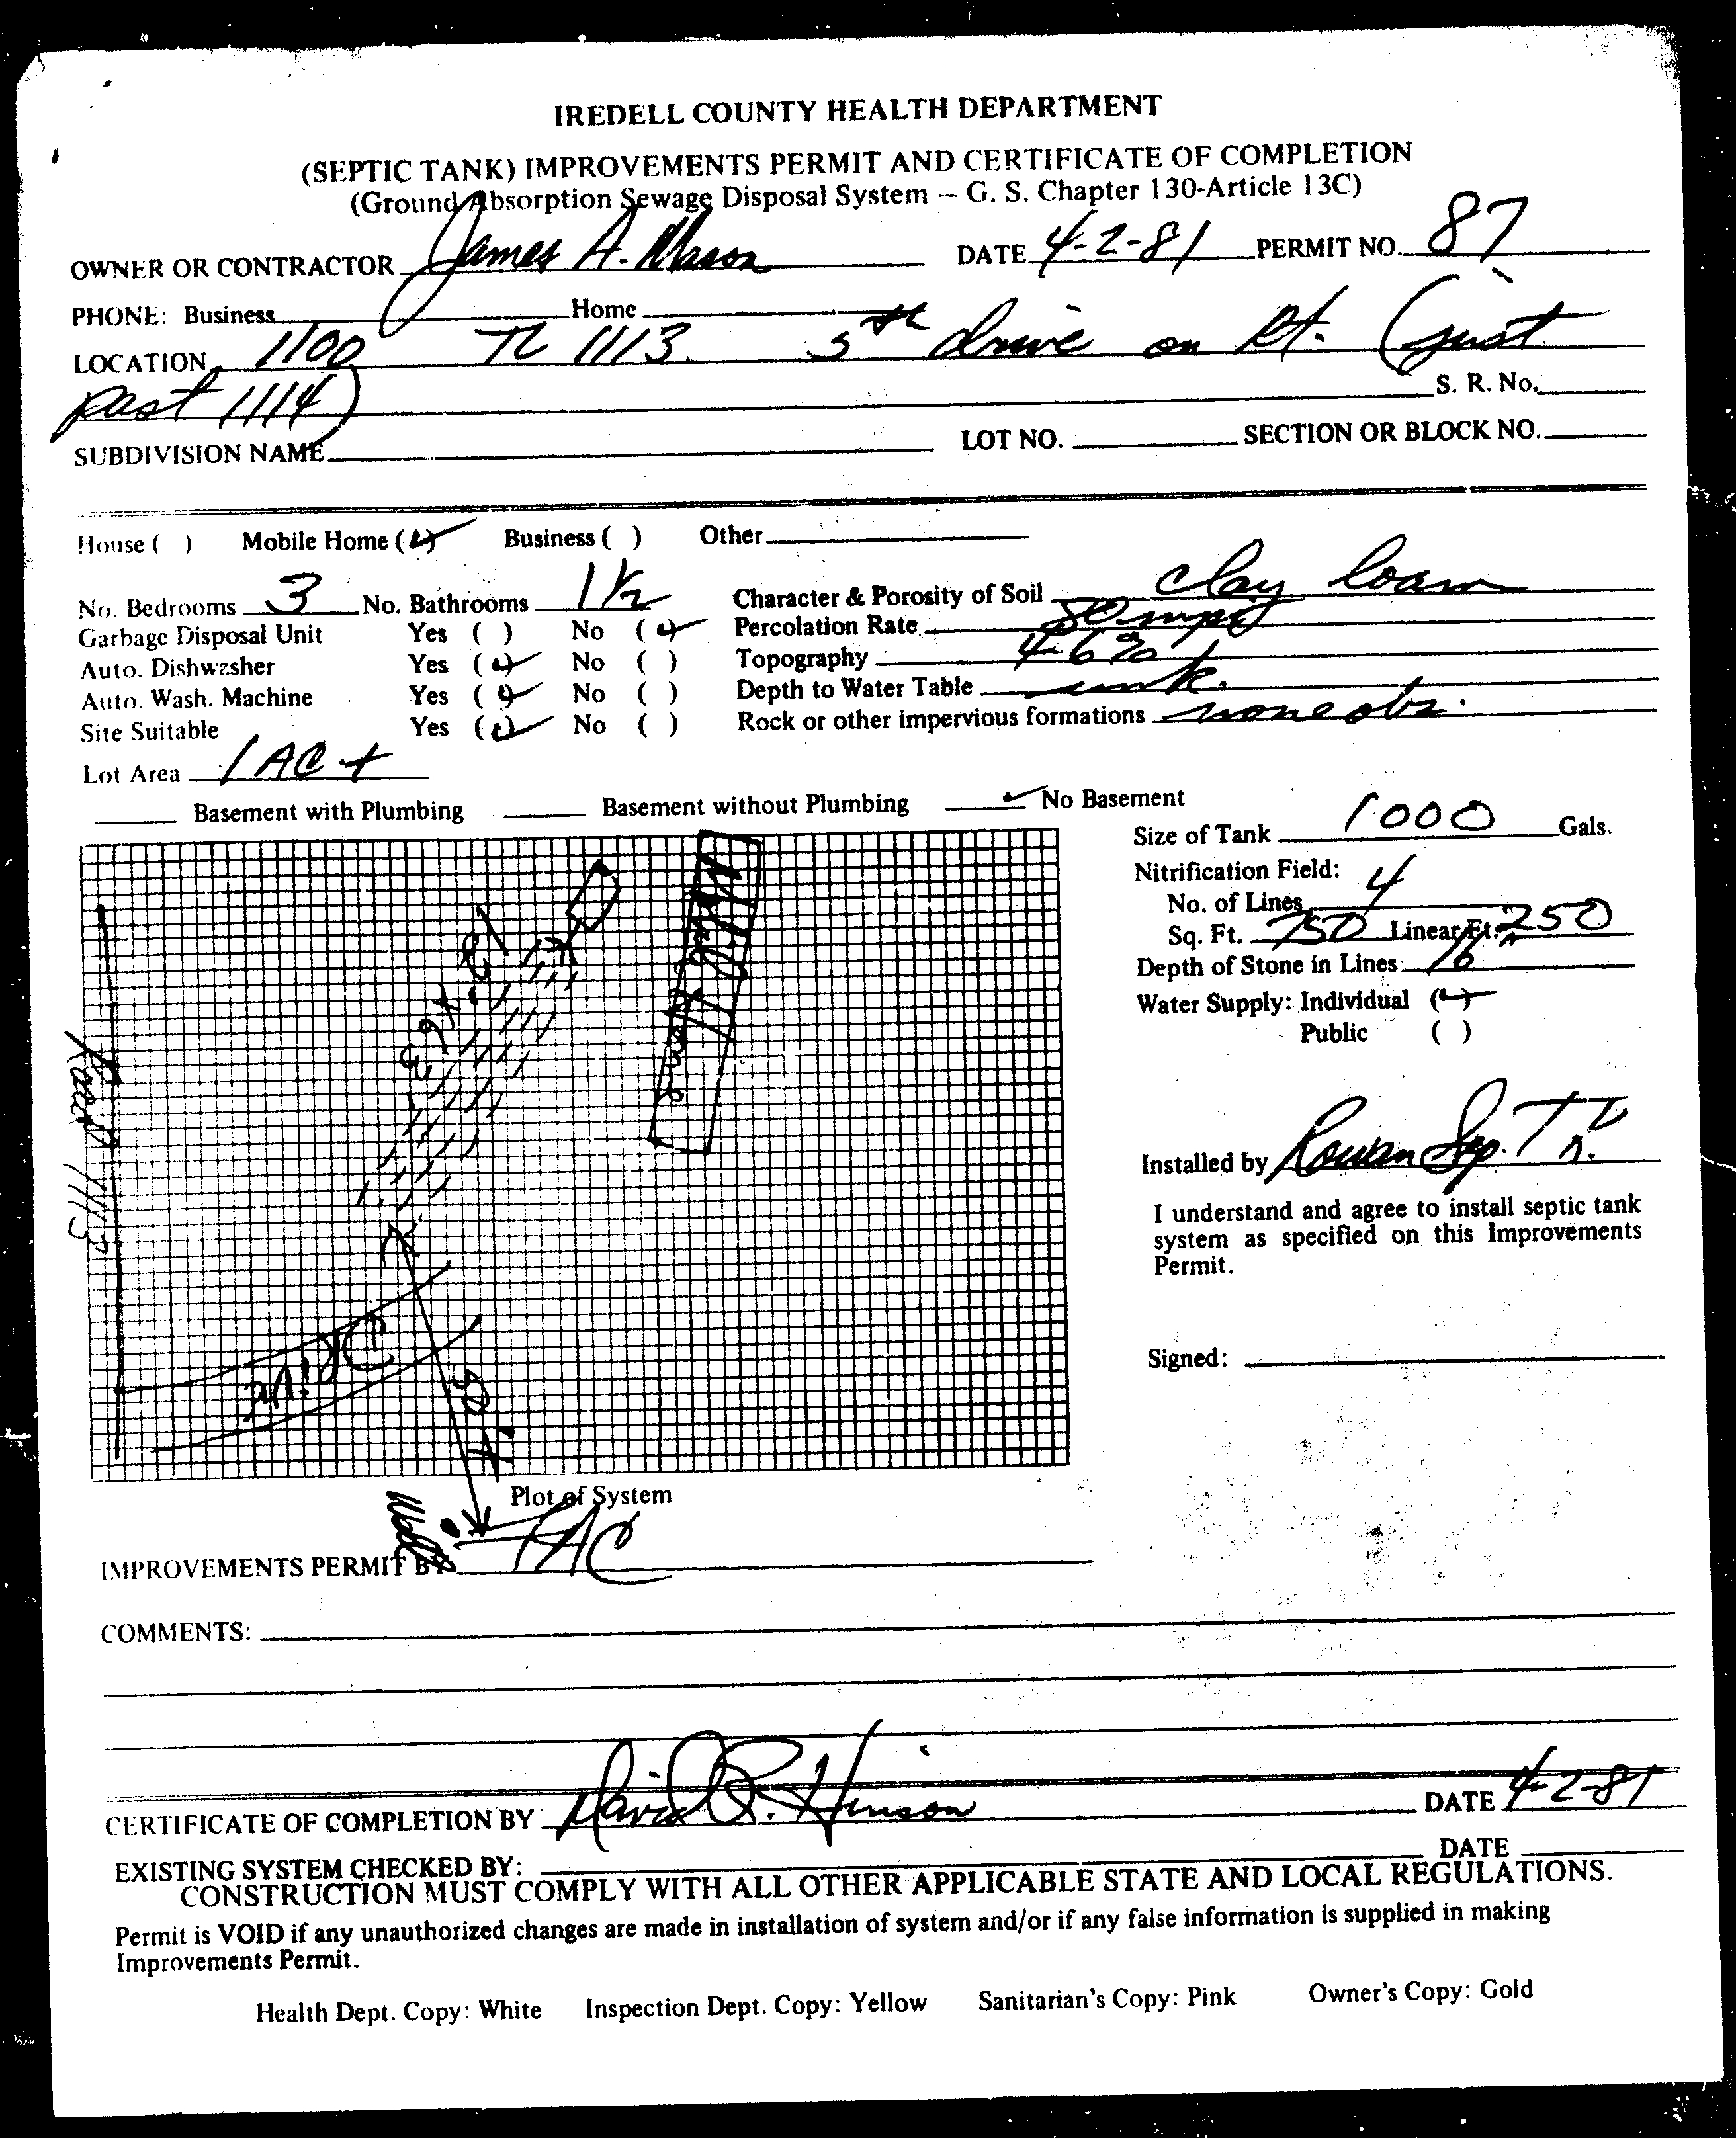 IREDELL COUNTY HEALTH DEPARTMENT
(SEPTIC TANK) IMPROVEMENTS PERMIT AND CERTIFICATE OF COMPLETION
(Ground Absorption Sewage Disposal System — G. S. Chapter 130-Article 13C)
OWNER OR CONTRACTOR James A. Mason DATE 4-2-81 PERMIT NO. 87
PHONE: Business Home
LOCATION 1100 TL 1113. 5th drive on Rt. (just
past 1114) S. R. No.
SUBDIVISION NAME LOT NO. SECTION OR BLOCK NO.
House ( ) Mobile Home (✓) Business ( ) Other
No. Bedrooms 3 No. Bathrooms 1 1/2 Character & Porosity of Soil clay loam
Garbage Disposal Unit Yes ( ) No (✓) Percolation Rate 80 mpi
Auto. Dishwasher Yes (✓) No ( ) Topography 4-6%
Auto. Wash. Machine Yes (✓) No ( ) Depth to Water Table unk.
Site Suitable Yes (✓) No ( ) Rock or other impervious formations none obs.
Lot Area 1 AC +
Basement with Plumbing Basement without Plumbing ✓ No Basement
Size of Tank 1000 Gals.
Nitrification Field:
No. of Lines 4
Sq. Ft. 750 Linear Ft. 250
Depth of Stone in Lines 16"
Water Supply: Individual (✓)
Public ( )
Mobile Home
Road 1113
Drive
50 ft
Well
Installed by Rowan Sep. TK.
I understand and agree to install septic tank
system as specified on this Improvements
Permit.
Signed:
Plot of System
IMPROVEMENTS PERMIT BY
COMMENTS:
CERTIFICATE OF COMPLETION BY David R. Hinson DATE 4-2-81
EXISTING SYSTEM CHECKED BY: DATE
CONSTRUCTION MUST COMPLY WITH ALL OTHER APPLICABLE STATE AND LOCAL REGULATIONS.
Permit is VOID if any unauthorized changes are made in installation of system and/or if any false information is supplied in making
Improvements Permit.
Health Dept. Copy: White Inspection Dept. Copy: Yellow Sanitarian's Copy: Pink Owner's Copy: Gold